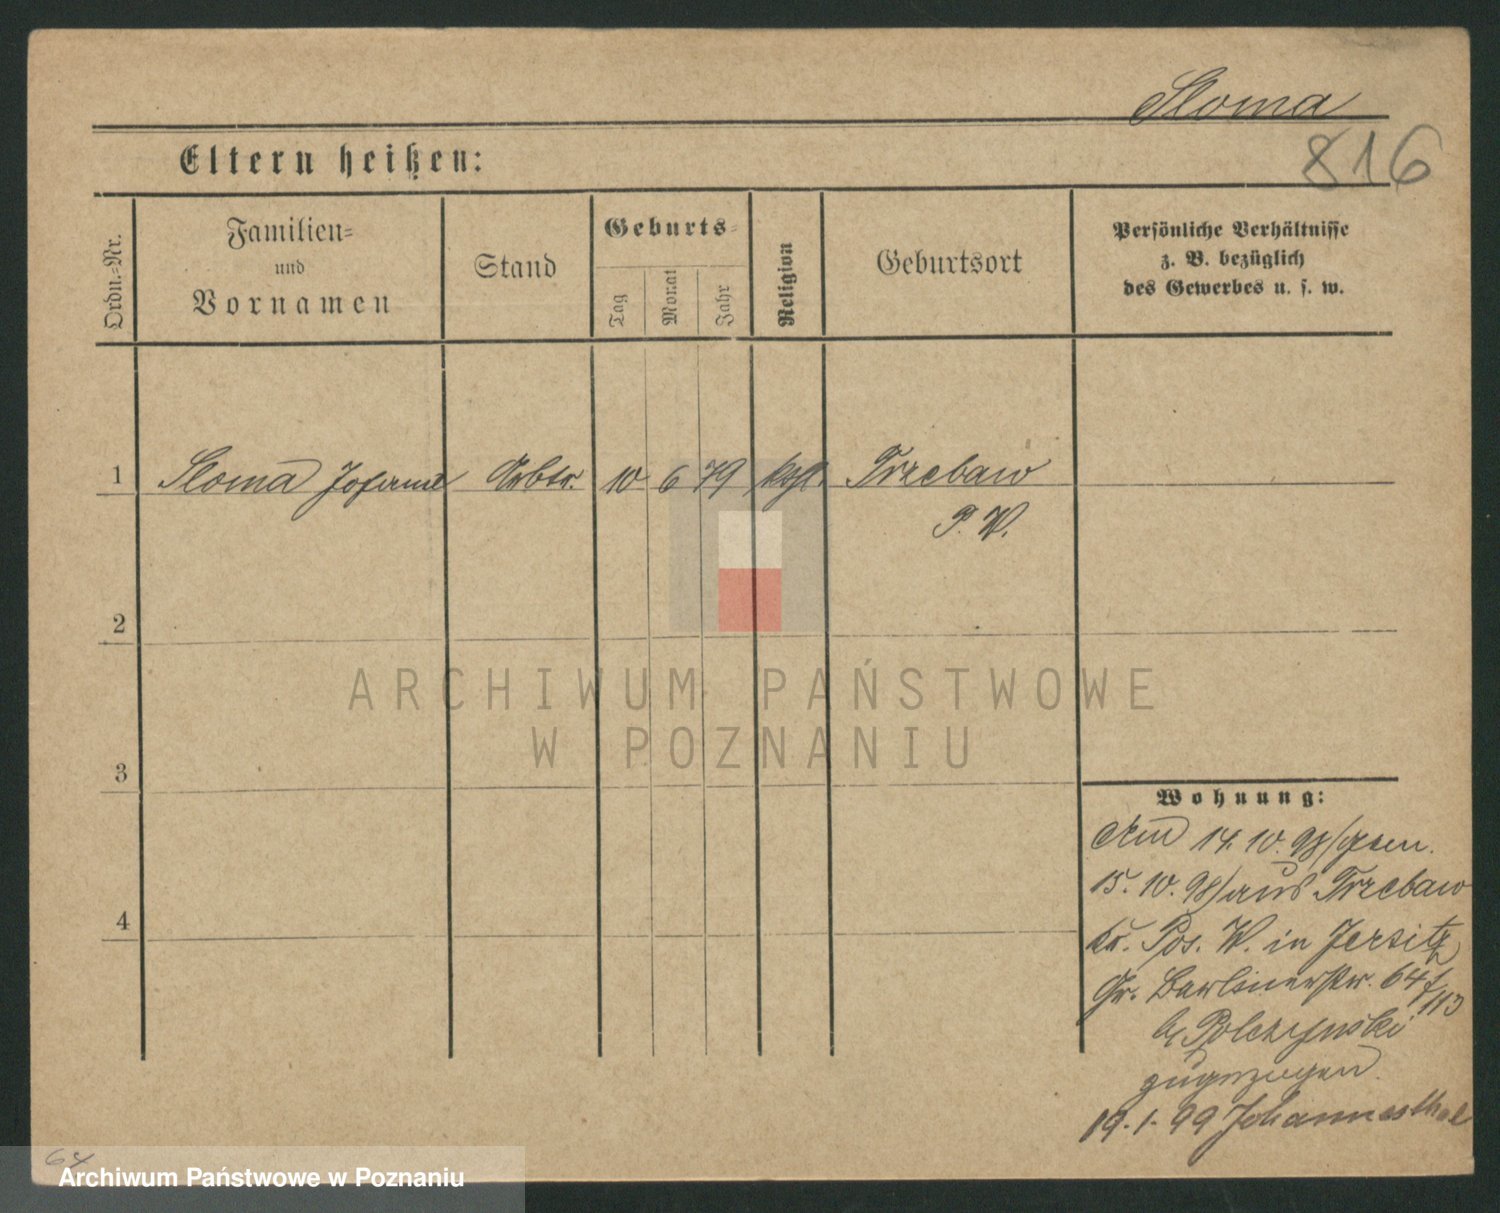 Sloma
816
Eltern heißen:
Ordn.-Nr.
Familien-
und
Vornamen
Stand
Geburts-
Tag
Monat
Jahr
Religion
Geburtsort
Persönliche Verhältnisse
z. B. bezüglich
des Gewerbes u. s. w.
1 Sloma Johann Arbtr. 10 6 79 kath. Trzebaw
P. W.
2
3
4
ARCHIWUM PAŃSTWOWE
W POZNANIU
Wohnung:
Am 14. 10. 98/gem.
15. 10. 98/aus Trzebaw
Kr. Pos. W. in Jersitz
Gr. Berlinerstr. 64
b/ Polczynski
zugezogen.
19. 1. 99 Johannesthal
64
Archiwum Państwowe w Poznaniu